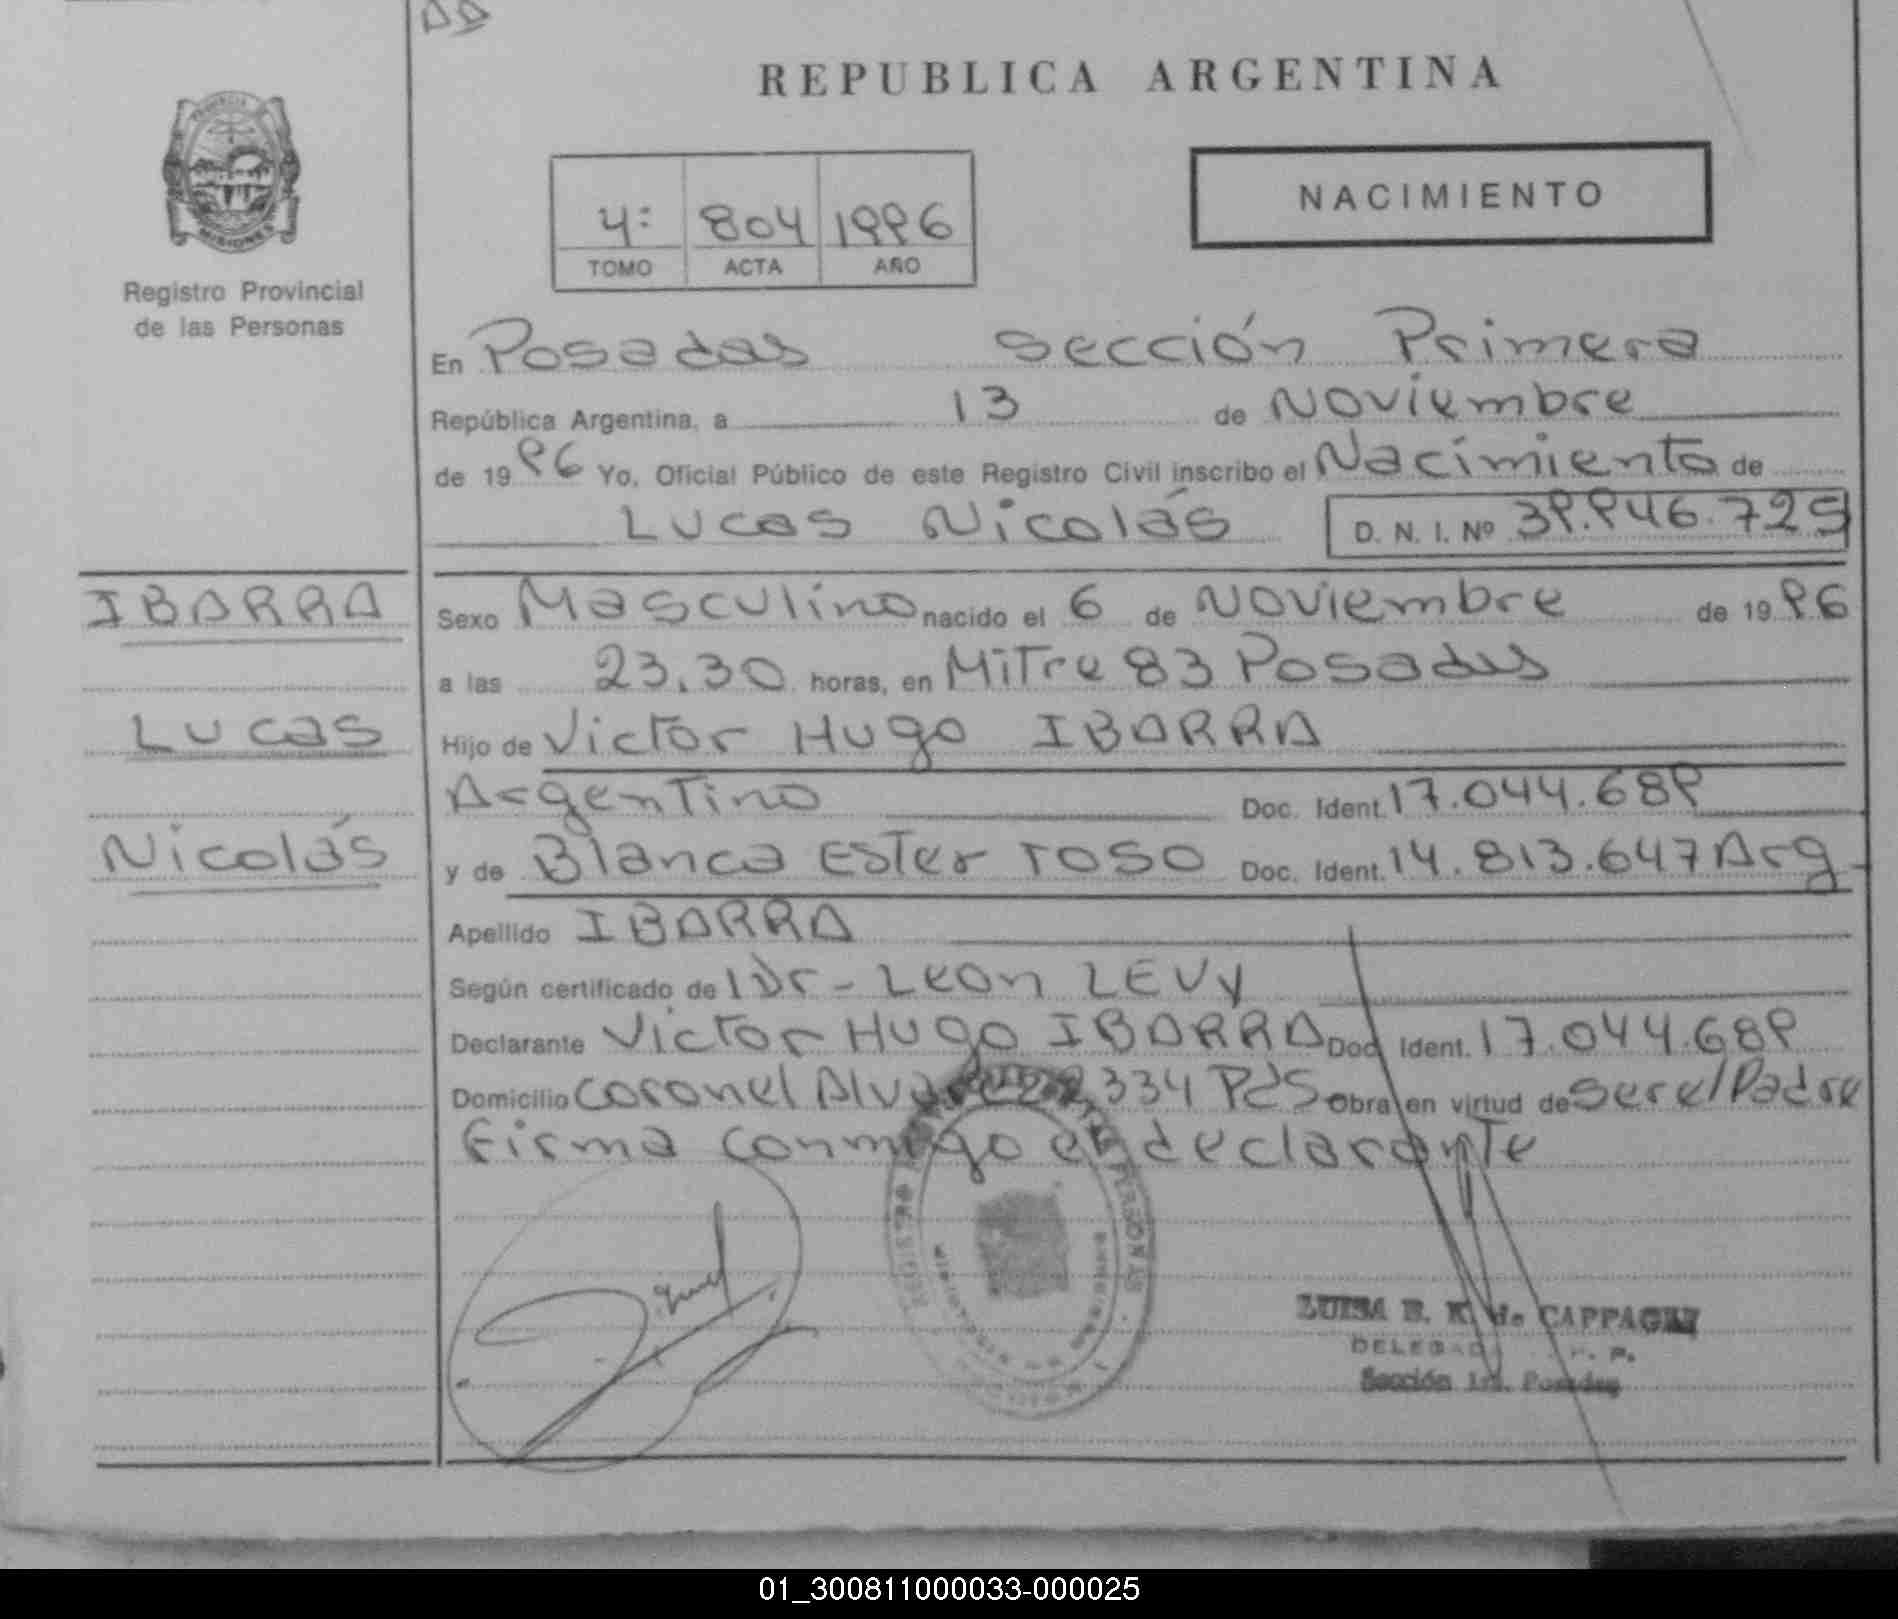 REPUBLICA ARGENTINA
PROVINCIA
MISIONES
Registro Provincial
de las Personas
4: 804 1996
TOMO ACTA AÑO
NACIMIENTO
En Posadas sección Primera
República Argentina, a 13 de Noviembre
de 19 96 Yo, Oficial Público de este Registro Civil inscribo el Nacimiento de
Lucas Nicolás D. N. I. Nº 39.946.725
IBARRA
Lucas
Nicolás
Sexo Masculino nacido el 6 de Noviembre de 19 96
a las 23.30 horas, en Mitre 83 Posadas
Hijo de Victor Hugo IBARRA
Argentino Doc. Ident. 17.044.689
y de Blanca Ester Toso Doc. Ident. 14.813.647 Arg
Apellido IBARRA
Según certificado de Dr - Leon LEVY
Declarante Victor Hugo IBARRA Doc Ident. 17.044.689
Domicilio Coronel 334 Pds Obra en virtud de ser el Padre
Firma conmigo el declarante
PERSONAS
LUISA E. K. de
Sección 1ra. Posadas
01_300811000033-000025